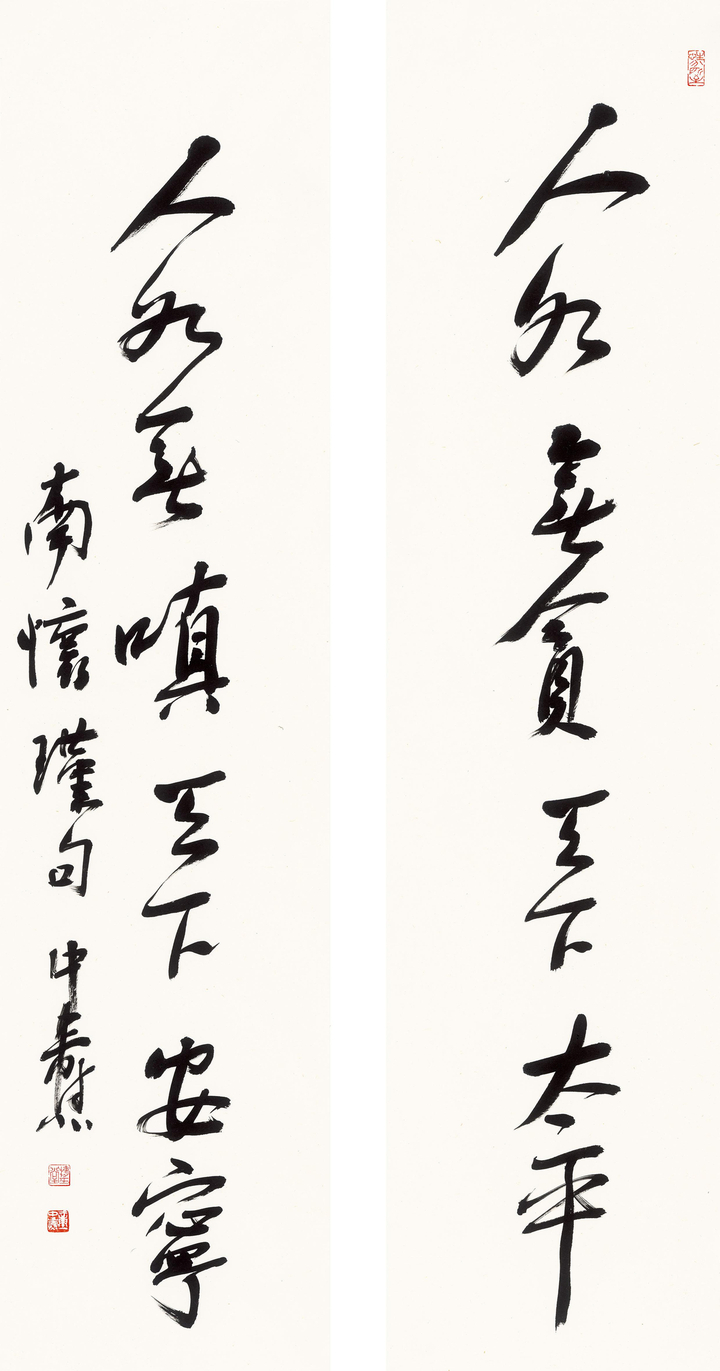 人如無貪天下太平
人如無嗔天下安寧
南懷瑾句